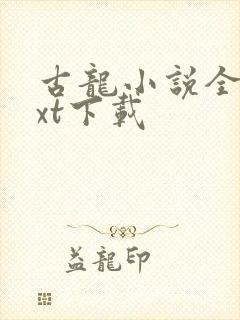 古龍小説全
xt下載
益龍印